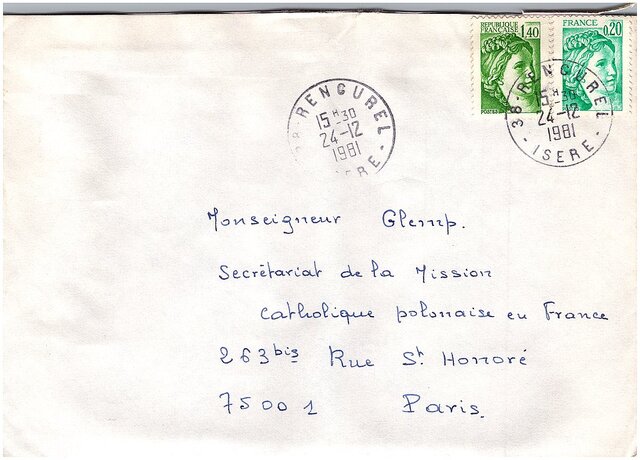 REPUBLIQUE FRANCAISE 1,40
FRANCE 0,20
38 - RENCUREL
15 H 30
24-12
1981
- ISERE -
38 - RENCUREL
15 H 30
24-12
1981
ERE -
Monseigneur Glemp.
Secrétariat de la Mission
catholique polonaise en France
263 bis Rue St Honnoré
75001 Paris.